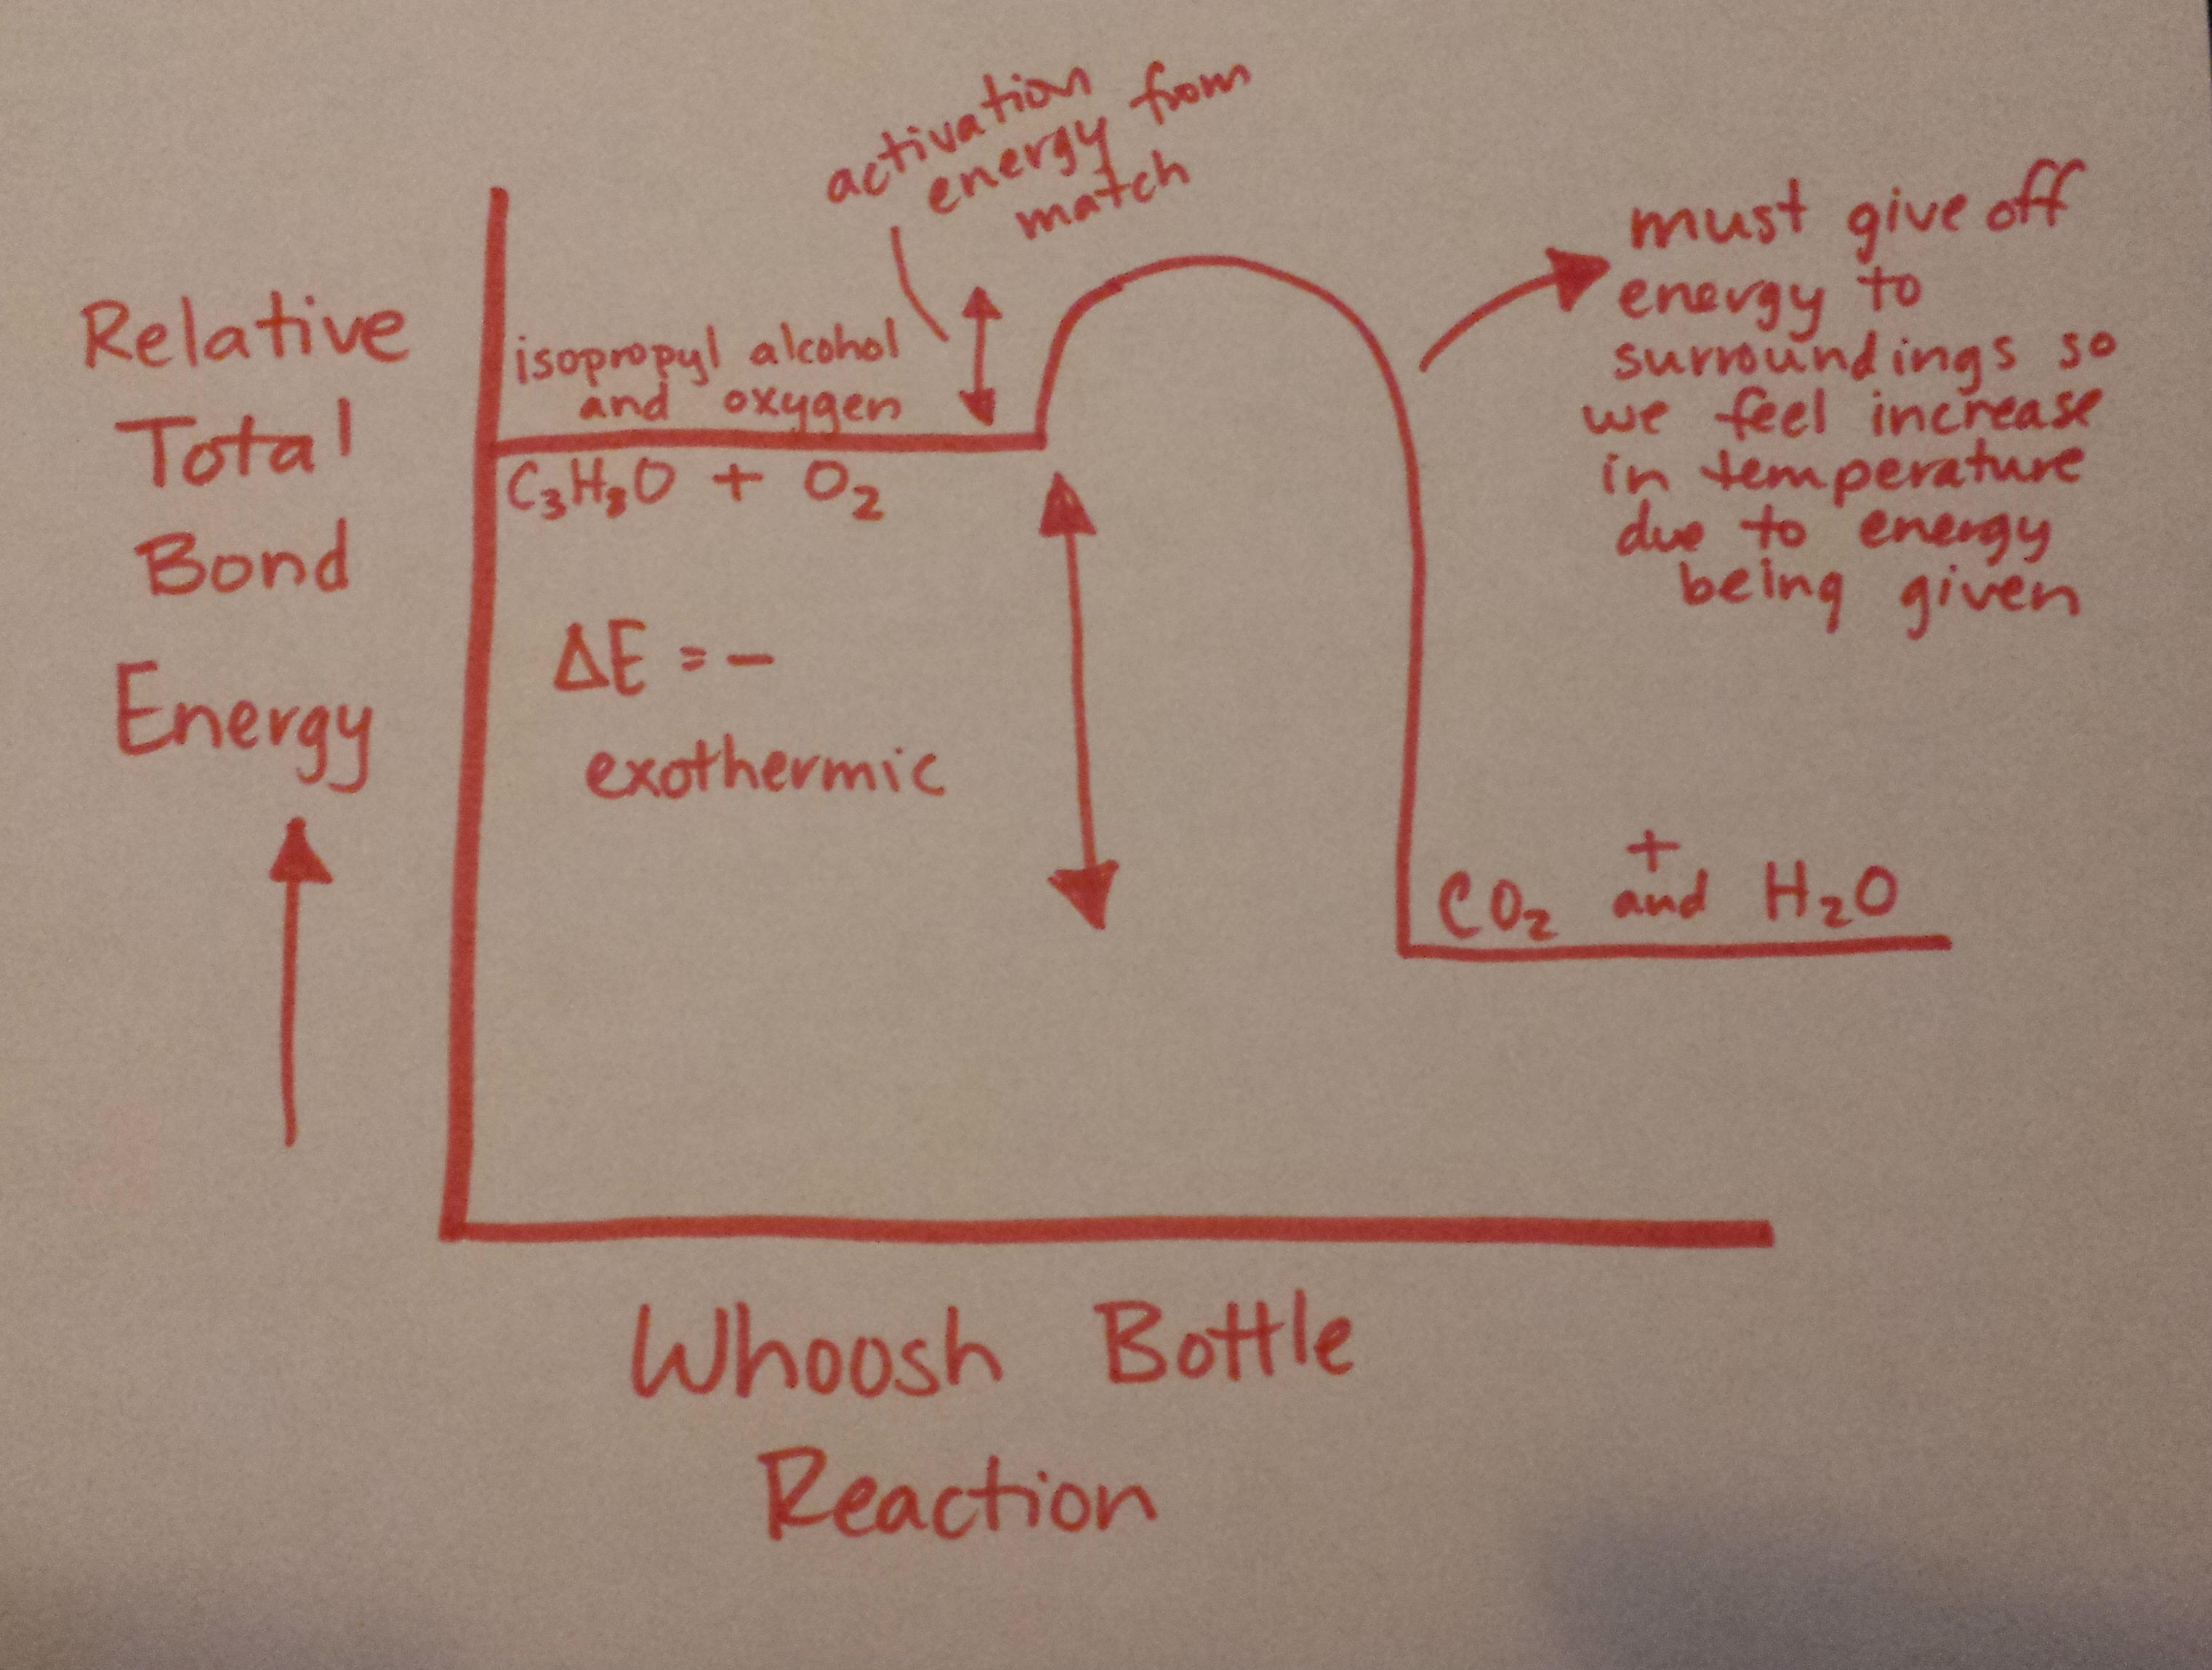 activation
energy from
match
must give off
energy to
surroundings so
we feel increase
in temperature
due to energy
being given
Relative
Total
Bond
Energy
isopropyl alcohol
and oxygen
C₃H₈O + O₂
ΔE = -
exothermic
+
CO₂ and H₂O
Whoosh Bottle
Reaction